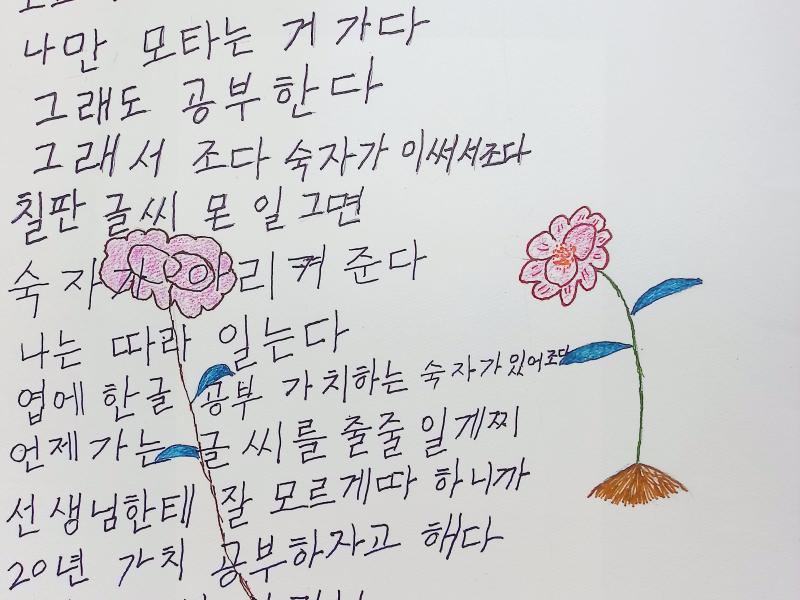 나만 모타는 거 가다
그래도 공부 한다
그래서 조다 숙자가 이써서조다
칠판 글씨 몬 일 그면
숙자가 아리켜 준다
나는 따라 일는다
엽에 한글 공부 가치하는 숙자가있어조다
언제가는 글씨를 줄줄 일게찌
선생님한테 잘 모르게따 하니까
20년 가치 공부하자고 해다